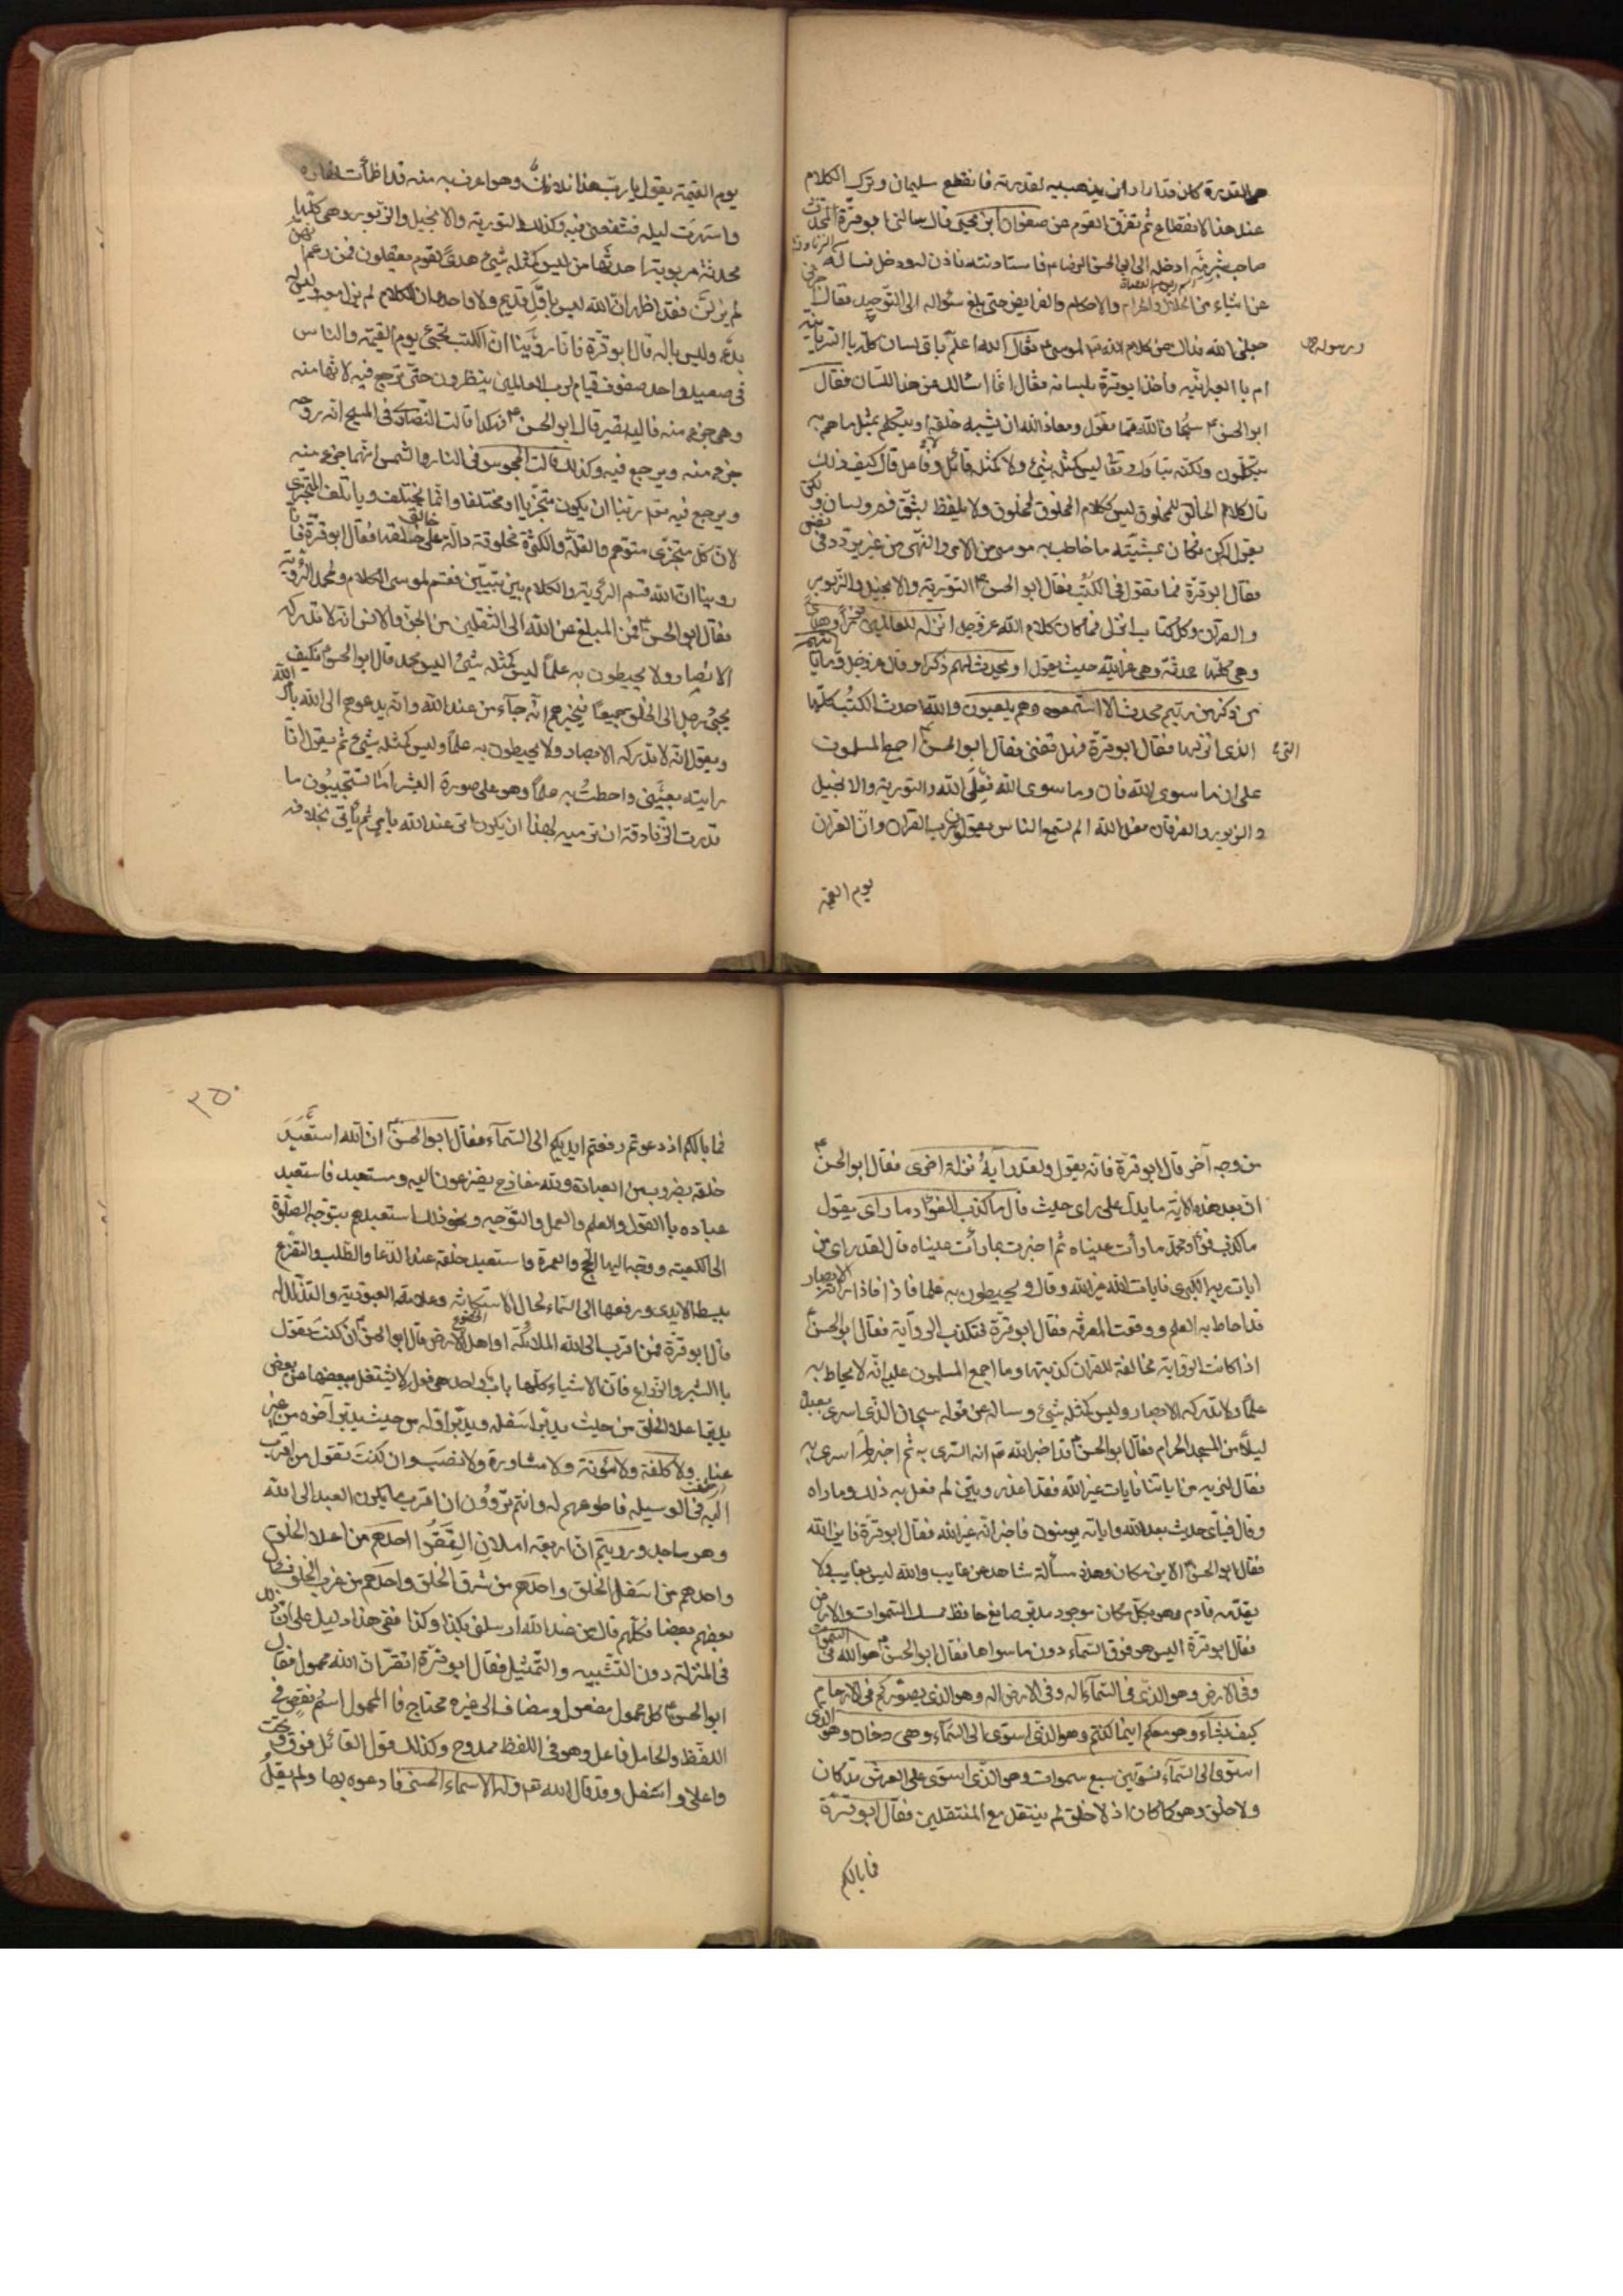 هى القدرة كان قد اراد ان يذهب به لقدرته فانقطع سليمان وترك الكلام
عند هذا الانقطاع ثم تفرق القوم عن صفوان ابن يحيى قال سالنى ابو قرة المحدث
صاحب شبرمة ادخله الى ابى الحسن الرضا ع فاستاذنته فاذن له ودخل فساله
عن اشياء من الحلال والحرام والاحكام والفرايض حتى بلغ سئواله الى التوحيد فقال
جعلنى الله فداك عن كلام الله تع لموسى ع فقال الله اعلم باى لسان كلمه بالسريانية
ورسوله
ام بالعبرانيه فاخذ ابو قرة بلسانه فقال انما اسالك عن هذا اللسان فقال
ابو الحسن ع سبحان الله مما تقول ومعاذ الله ان يشبه خلقه او يتكلم بمثل ما هم به
متكلمون ولكنه تبارك وتعا ليس كمثله شئ ولا كمثله قائل ولا فاعل قال كيف ذلك
قال كلام الخالق للمخلوق ليس ككلام المخلوق لمخلوق ولا يلفظ بشق فم ولسان ولكن
يقول كن فكان بمشيته ما خاطب به موسى من الامر والنهى من غير تردد فى نفس
فقال ابو قرة فما تقول فى الكتب فقال ابو الحسن ع التورية والانجيل والزبور
والفرقان وكل كتاب انزل فما كان كلام الله عز وجل انزله للعالمين
وهى كلها محدثة وهى غير الله حيث يقول او يحدث لهم ذكرا وقال عز وجل وما ياتيهم
من ذكر من ربهم محدث الا استمعوه وهم يلعبون والله احدث الكتب كلها
التى الذى انزلها فقال ابو قرة فهل تفنى فقال ابو الحسن ع اجمع المسلمون
على ان ما سوى الله فان وما سوى الله فعل الله والتورية والانجيل
والزبور والفرقان فعل الله الم تسمع الناس يقولون رب القران وان القران
يوم القيمه
يوم القيمة يقول يا رب هذا فلان وهو اعرف به منه قد اظمأت نهاره
واسهرت ليله فشفعنى فيه وكذلك التورية والانجيل والزبور وهى كلها
محدثة مربوبة احدثها من ليس كمثله شئ هدى لقوم يعقلون فمن زعم انهن
لم يزلن فقد اظهر ان الله ليس باول قديم ولا واحد وان الكلام لم يزل معه وليس له
بدء وليس باله قال ابو قرة فانا روينا ان الكتب تجئ يوم القيمة والناس
فى صعيد واحد صفوف قيام لرب العالمين ينظرون حتى ترجع فيه لانها منه
وهى جزء منه فاليه تصير قال ابو الحسن ع فهكذا قالت النصارى فى المسيح انه روحه
جزء منه ويرجع فيه وكذلك قالت المجوس فى النار والشمس انهما جزء منه
ويرجع فيه تع ربنا ان يكون متجزيا او مختلفا وانما يختلف ويأتلف المتجزى
لان كل متجزى متوهم والقلة والكثرة مخلوقة دالة على خالق خلقها فقال ابو قرة فانا
روينا ان الله قسم الرؤية والكلام بين نبيين فقسم لموسى الكلام ولمحمد الرؤية
فقال ابو الحسن ع فمن المبلغ عن الله الى الثقلين من الجن والانس انه لا تدركه
الابصار ولا يحيطون به علما ليس كمثله شئ اليس محمد قال ابو الحسن فكيف
يجئ رجل الى الخلق جميعا فيخبرهم انه جاء من عند الله وانه يدعوهم الى الله بامر الله
ويقول انه لا تدركه الابصار ولا يحيطون به علما وليس كمثله شئ ثم يقول انا
رايته بعينى واحطت به علما وهو على صورة البشر اما تستجيبون ما
قدرت الزنادقة ان ترميه بهذا ان يكون اتى عند الله بامر ثم ياتى بخلافه
من وجه آخر قال ابو قرة فانه يقول ولقد رآه نزلة اخرى فقال ابو الحسن ع
ان بعد هذه الآية ما يدل على ما راى حيث قال ما كذب الفؤاد ما راى يقول
ما كذب فؤاد محمد ما رأت عيناه ثم اخبرت بما رأت عيناه قال لقد راى من
ايات ربه الكبرى فايات الله غير الله وقال ولا يحيطون به علما فاذا راته الابصار
فقد احاط به العلم ووقعت المعرفة فقال ابو قرة فتكذب الرواية فقال ابو الحسن ع
اذا كانت الرواية مخالفة للقران كذبتها وما اجمع المسلمون عليه انه لا يحاط به
علما ولا تدركه الابصار وليس كمثله شئ وساله عن قوله سبحان الذى اسرى بعبده
ليلا من المسجد الحرام فقال ابو الحسن ع قد اخبر الله تع انه اسرى به ثم اخبر لم اسرى به
فقال لنريه من اياتنا فايات غير الله فقد اعذر وبين لم فعل به ذلك وما راه
وقال فباى حديث بعد الله واياته يومنون فاخبر انه غير الله فقال ابو قرة فاين الله
فقال ابو الحسن ع الاين مكان وهذه مسألة شاهد عن غايب والله ليس بغايب ولا
يقدمه قادم وهو بكل مكان موجود مدبر صانع حافظ ممسك السموات والارض
فقال ابو قرة اليس هو فوق السماء دون ما سواها فقال ابو الحسن ع هو الله فى السموات
وفى الارض وهو الذى فى السماء اله وفى الارض اله وهو الذى يصوركم فى الارحام
كيف يشاء وهو معكم اينما كنتم وهو الذى استوى الى السماء وهى دخان وهو الذى
استوى الى السماء فسويهن سبع سموات وهو الذى استوى على العرش قد كان
ولا خلق وهو كما كان اذ لا خلق لم ينتقل مع المنتقلين فقال ابو قرة
فما بالكم
٢٥٠
فما بالكم اذ دعوتم رفعتم ايديكم الى السماء فقال ابو الحسن ع ان الله استعبد
خلقه بضروب من العبادة ولله مفازع يفزعون اليه ومستعبد فاستعبد
عباده بالقول والعلم والعمل والتوجيه ونحو ذلك استعبدهم بتوجه الصلوة
الى الكعبة ووجه اليها الحج والعمرة واستعبد خلقه عند الدعا والطلب والتضرع
ببسط الايدى ورفعها الى السماء لحال الاستكانة وعلامة العبودية والتذلل له
قال ابو قرة فمن اقرب الى الله الملائكة او اهل الارض قال ابو الحسن ع ان كنت تقول
بالشبر والذراع فان الاشياء كلها باب واحد هى فعله لا يشتغل ببعضها عن بعض
يدبر اعلا الخلق من حيث يدبر اسفله ويدبر اوله من حيث يدبر آخره من غير
عناء ولا كلفة ولا مؤنة ولا مشاورة ولا نصب وان كنت تقول من اقرب
اليه فى الوسيله فاطوعهم له وانتم تروون ان اقرب ما يكون العبد الى الله
وهو ساجد ورويتم ان اربعة املاك التقوا احدهم من اعلا الخلق
واحدهم من اسفل الخلق واحدهم من شرق الخلق واحدهم من غرب الخلق فسال
بعضهم بعضا فكلهم قال من عند الله ارسلنى بكذا وكذا ففى هذا دليل على ان ذلك
فى المنزلة دون التشبيه والتمثيل فقال ابو قرة اتقر ان الله محمول فقال
ابو الحسن ع كل محمول مفعول ومضاف الى غيره محتاج فالمحمول اسم نقص فى
اللفظ والحامل فاعل وهو فى اللفظ ممدوح وكذلك قول القائل فوق وتحت
واعلى واسفل وقد قال الله تع وله الاسماء الحسنى فادعوه بها ولم يقل